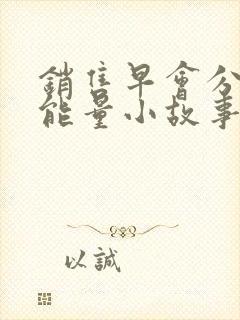 銷售早會分
能量小故事
以誠